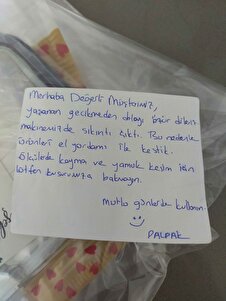 Merhaba Değerli Müşterimiz,
yaşanan gecikmeden dolayı özür dileriz
makinemizde sıkıntı çıktı. Bu nedenle
ürünleri el yordamı ile kestik.
Ölçülerde kayma ve yamuk kesim için
lütfen kusurumuza bakmayın.
Mutlu günlerde kullanın
PALPAK